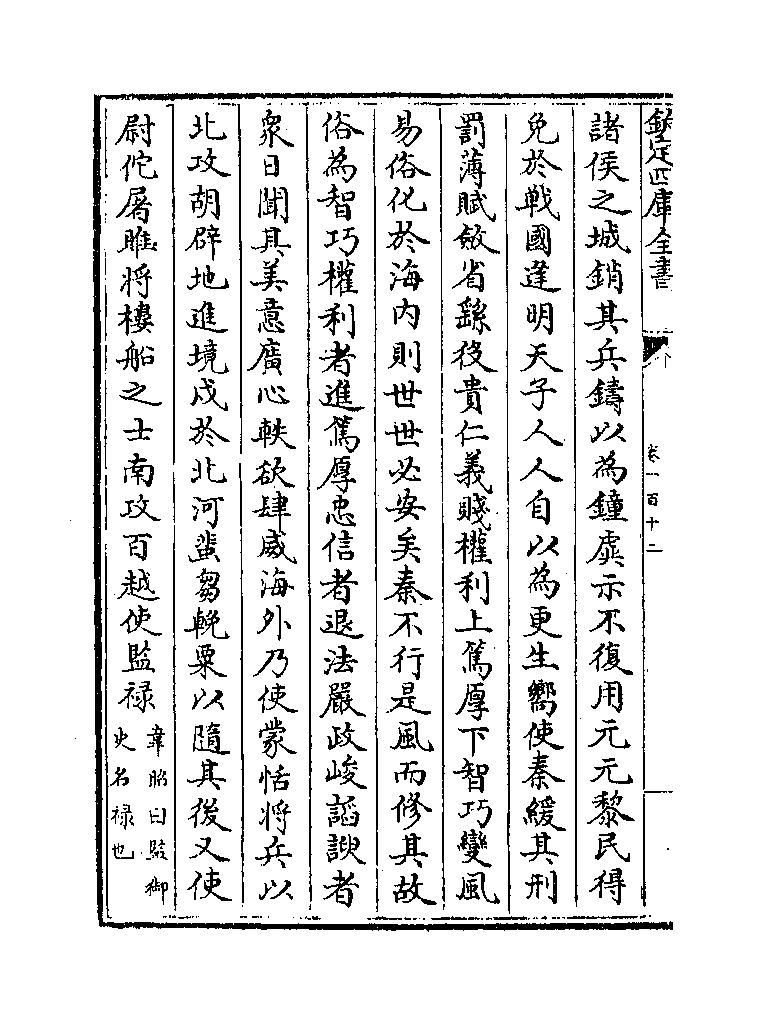 欽定四庫全書
卷一百十二
諸侯之城銷其兵鑄以為鐘虡示不復用元元黎民得
免於戰國逢明天子人人自以為更生嚮使秦緩其刑
罰薄賦斂省繇役貴仁義賤權利上篤厚下智巧變風
易俗化於海內則世世必安矣秦不行是風而修其故
俗為智巧權利者進篤厚忠信者退法嚴政峻諂諛者
衆日聞其美意廣心軼欲肆威海外乃使蒙恬將兵以
北攻胡辟地進境戍於北河蜚芻輓粟以隨其後又使
尉佗屠睢將樓船之士南攻百越使監祿韋昭曰監御
史名祿也